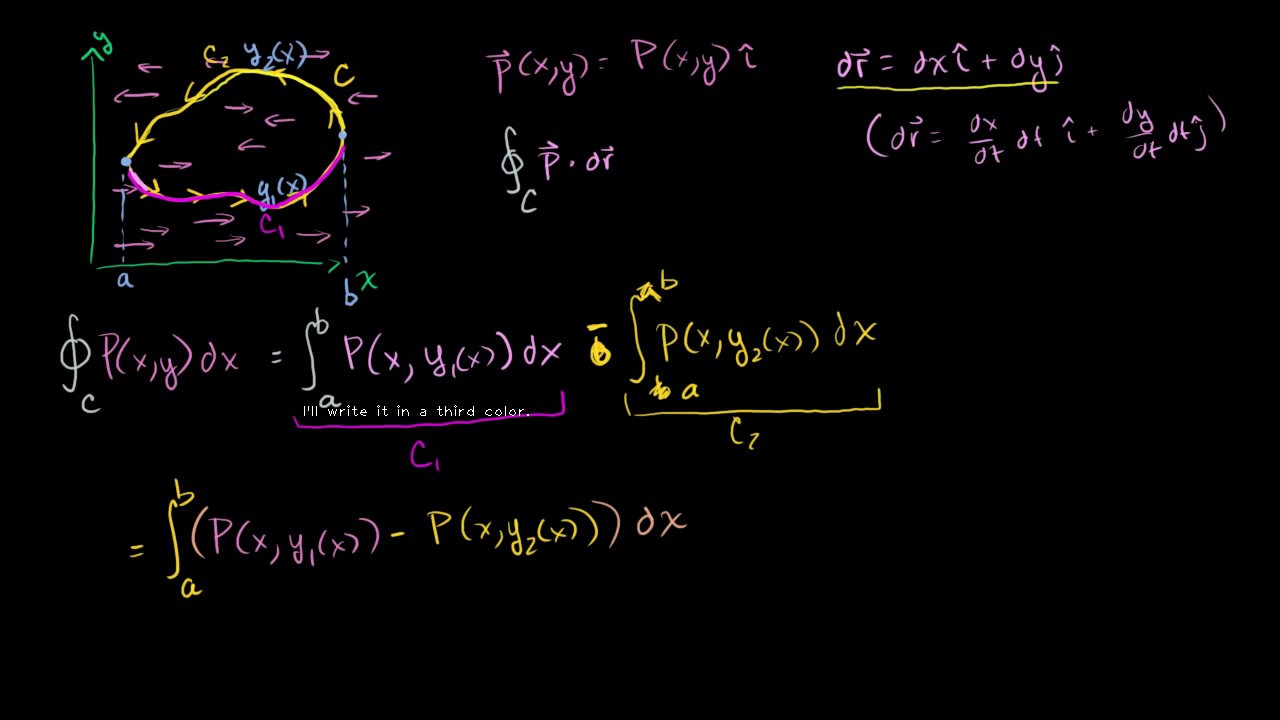 y
C₂ y₂(x)
C
y₁(x)
C₁
a
b
x
P⃗(x,y) = P(x,y) î
dr⃗ = dx î + dy ĵ
(dr⃗ = dx/dt dt î + dy/dt dt ĵ)
∮_C P⃗ · dr⃗
∮_C P(x,y) dx = ∫_a^b P(x, y₁(x)) dx - ∫_a^b P(x, y₂(x)) dx
I'll write it in a third color.
C₁
C₂
= ∫_a^b (P(x, y₁(x)) - P(x, y₂(x))) dx